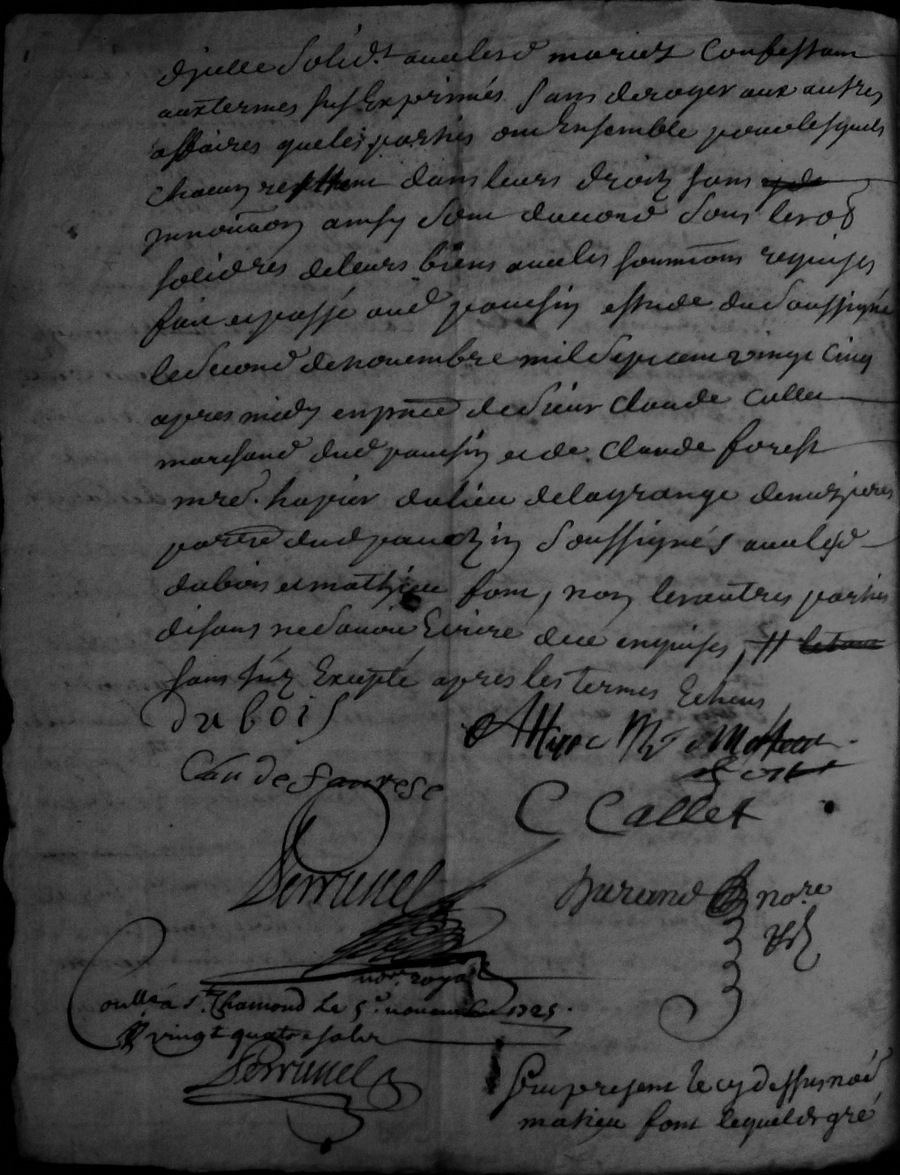 d'jcelle solid.t avec lesd mariez confessant
aux termes sus Exprimés sans deroger aux autres
affaires que les parties ont Ensemble pour lesquels
chacun restent dans leurs droitz sans
jnnovaon ainsy sont daccord sous les
solid.res de leurs biens avec les soumions requises
fait et passé aud pauesin estude du soussigné
le second de novembre mil sept cent vingt Cinq
apres midy en pnce de sieur Claude Callet
marchand dud pauesin et de Claude forest
mre. du lieu de la grange de
parre dud pauezin soussignés avec lesd
dubois et mathieu font, non les autres parties
disans ne savoir Ecrire de ce enquises,
Excepté apres les termes Echeus
dubois
Claude
C Callet
Perrunel
Durand no.re
no.re royal
Conlle a St. Chamond Le 5e. novembre 1725.
R vingt quatre sols
Perrunel
present le cy dessus noé
mathieu font lequel de gré